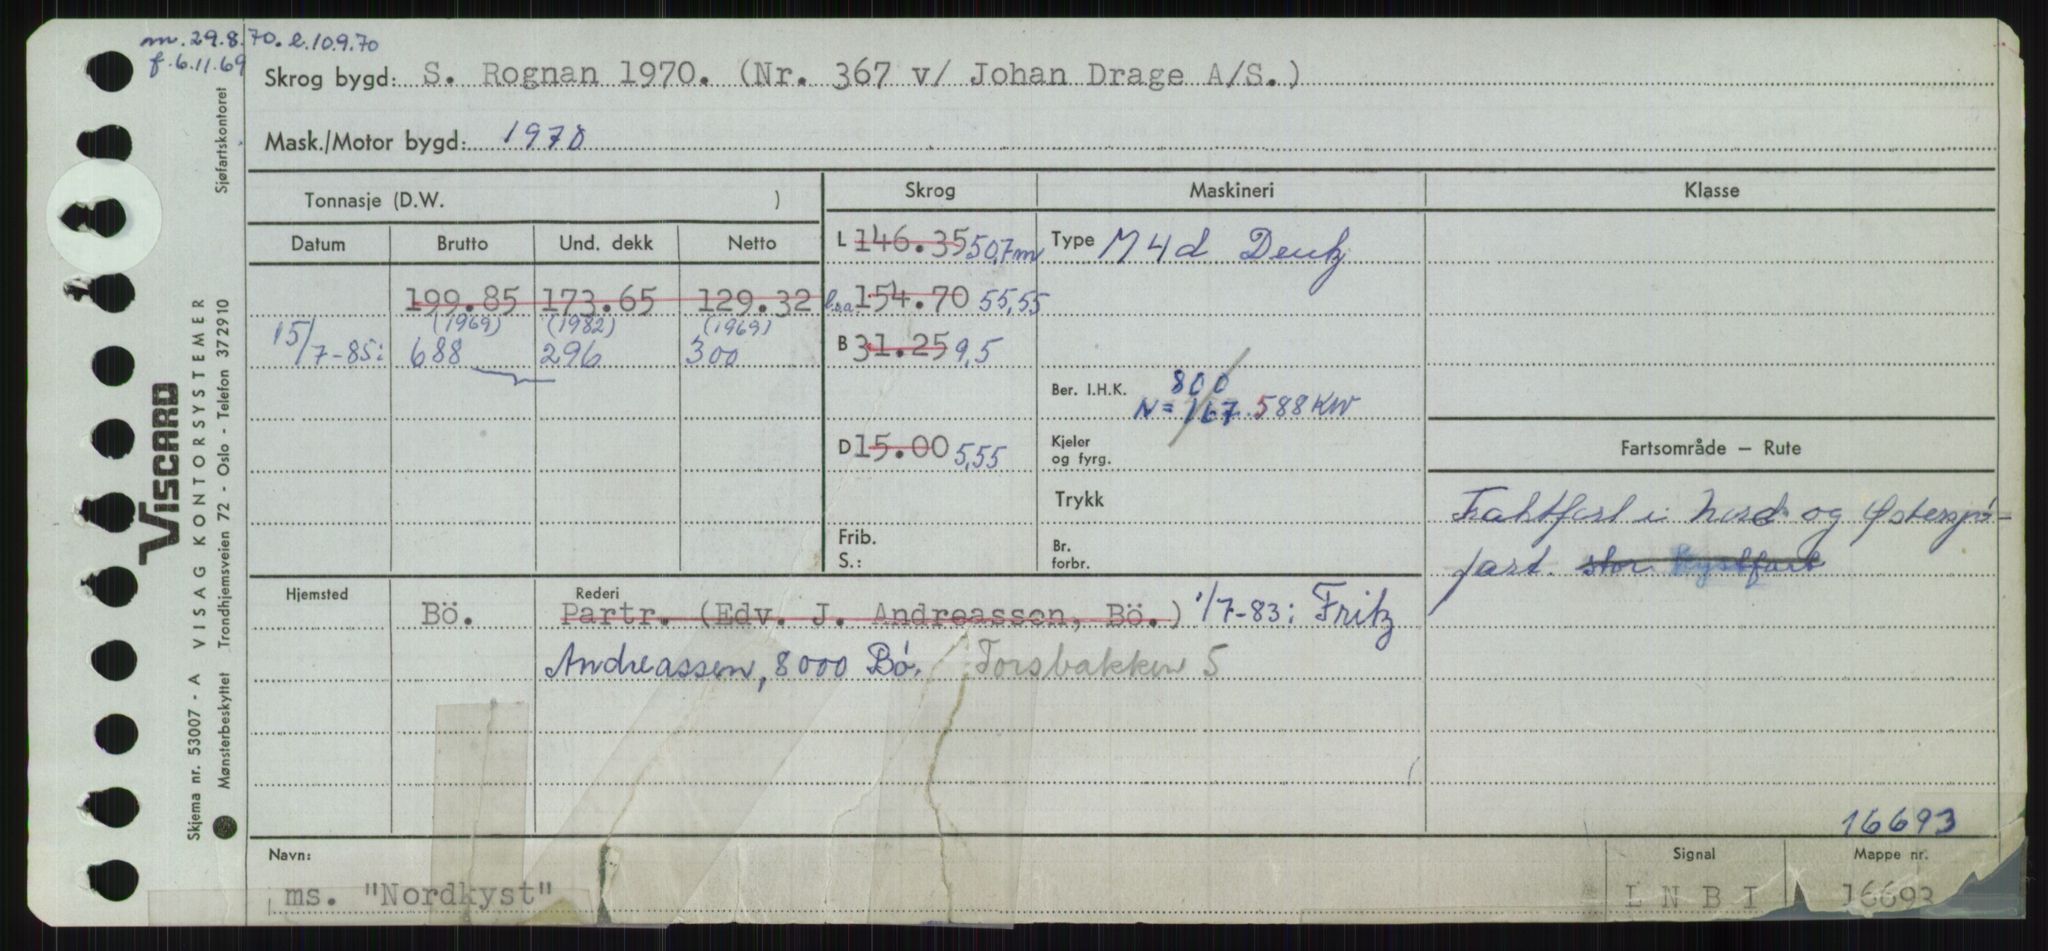 m. 29.8.70. l. 10.9.70
f. 6.11.69
Skrog bygd: S. Rognan 1970. (Nr. 367 v/ Johan Drage A/S.)
Mask./Motor bygd: 1970
Tonnasje (D.W. )
Skrog Maskineri Klasse
Datum Brutto Und. dekk Netto
L 146.35 50,7m Type M 4d Deutz
199.85 173.65 129.32 l.o.a. 154.70 55,55
(1969) (1982) (1969)
15/7-85: 688 296 300 B 31.25 9,5
Ber. I.H.K. 800
N = 167. 588 KW
D 15.00 5,55 Kjeler
og fyrg.
Fartsområde — Rute
Trykk
Fraktfart i Nord- og Østersjø-
fart. stor kystfart
Frib.
S.:
Br.
forbr.
Hjemsted Rederi
Bö. Partr. (Edv. J. Andreassen, Bö.) 1/7-83: Fritz
Andreassen, 8000 Bø. Torsbakken 5
16693
Navn: Signal Mappe nr.
ms. "Nordkyst" L N B I 16693
Sjøfartskontoret
VISCARD
Skjema nr. 53007 - A VISAG KONTORSYSTEMER
Mønsterbeskyttet Trondhjemsveien 72 - Oslo - Telefon 372910